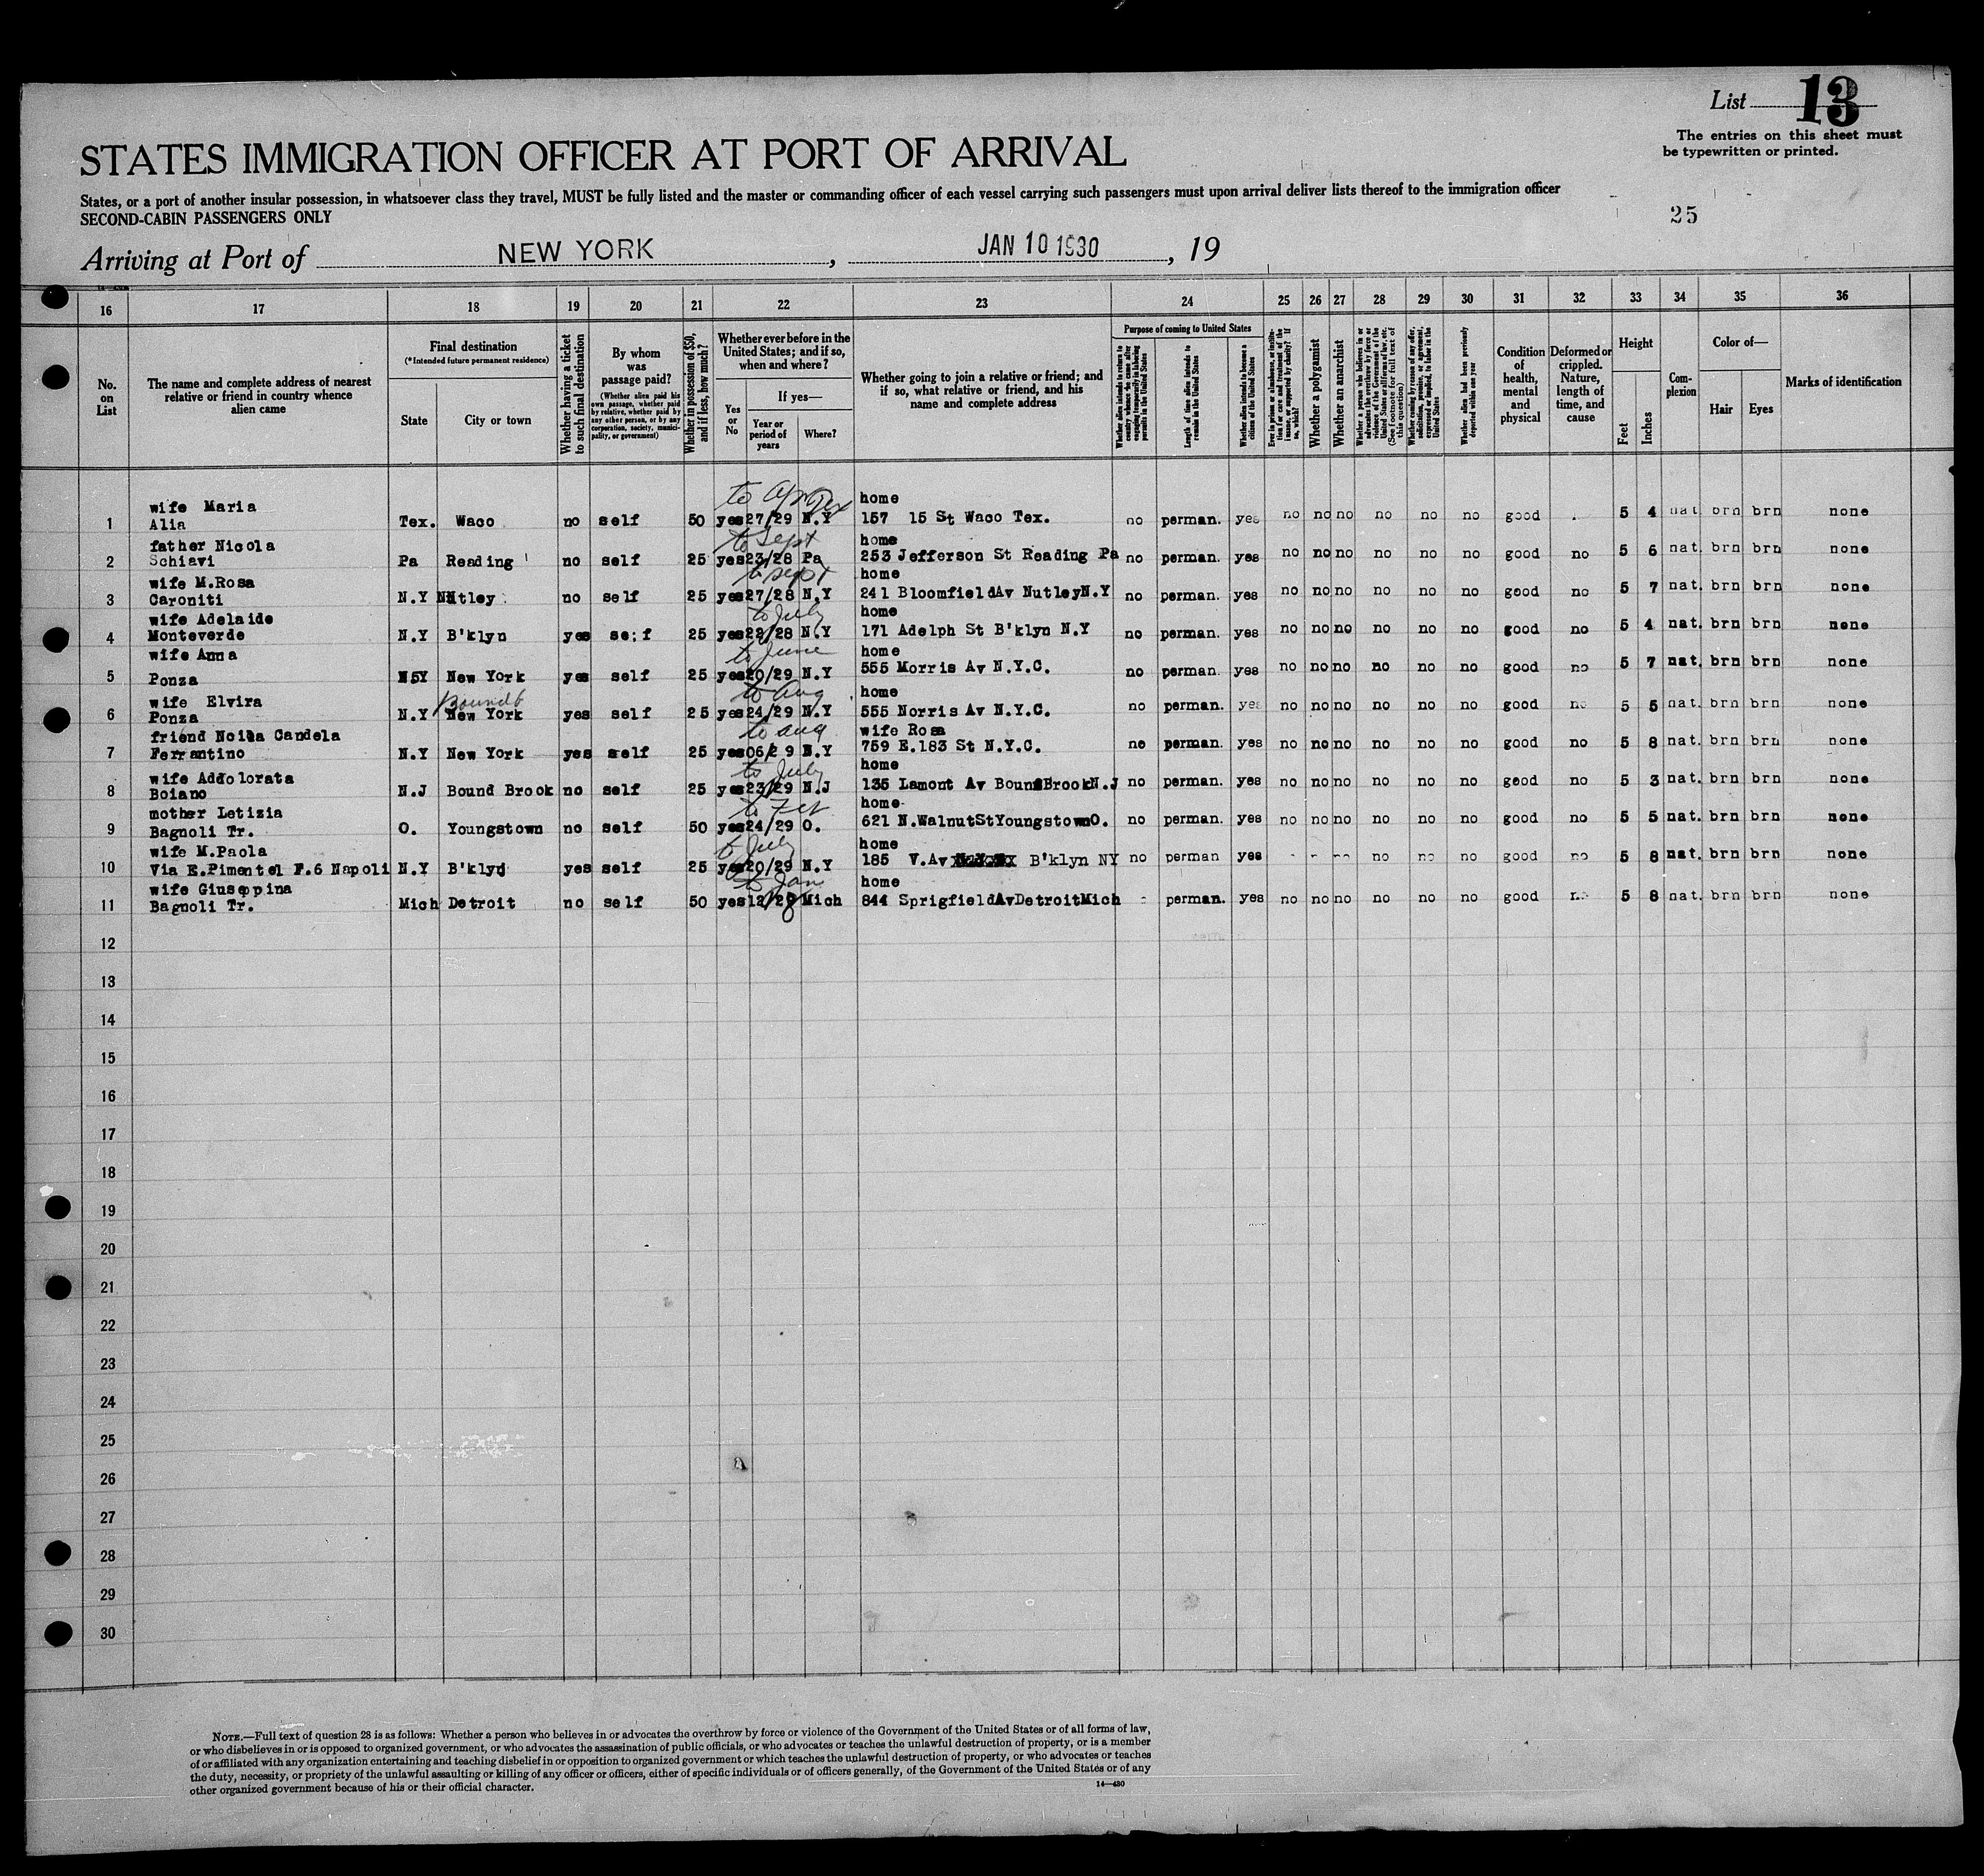 List 13
The entries on this sheet must
be typewritten or printed.
STATES IMMIGRATION OFFICER AT PORT OF ARRIVAL
States, or a port of another insular possession, in whatsoever class they travel, MUST be fully listed and the master or commanding officer of each vessel carrying such passengers must upon arrival deliver lists thereof to the immigration officer
SECOND-CABIN PASSENGERS ONLY
25
Arriving at Port of NEW YORK, JAN 10 1930, 19
16 17 18 19 20 21 22 23 24 25 26 27 28 29 30 31 32 33 34 35 36
No. on List
The name and complete address of nearest
relative or friend in country whence
alien came
Final destination
(*Intended future permanent residence)
State
City or town
Whether having a ticket
to such final destination
By whom
was
passage paid?
(Whether alien paid his
own passage, whether paid
by relative, whether paid by
any other person, or by any
corporation, society, munici-
pality, or government)
Whether in possession of $50,
and if less, how much?
Whether ever before in the
United States; and if so,
when and where?
If yes—
Yes
or
No
Year or
period of
years
Where?
Whether going to join a relative or friend; and
if so, what relative or friend, and his
name and complete address
Purpose of coming to United States
Whether alien intends to return to
country whence he came after
engaging temporarily in laboring
pursuits in the United States
Length of time alien intends to
remain in the United States
Whether alien intends to become a
citizen of the United States
Ever in prison or almshouse, or institu-
tion for care and treatment of the
insane, or supported by charity? If
so, which?
Whether a polygamist
Whether an anarchist
Whether a person who believes in or
advocates the overthrow by force or
violence of the Government of the
United States or all forms of law, etc.
(See footnote for full text of
this question)
Whether coming by reason of any offer,
solicitation, promise, or agreement,
expressed or implied, to labor in the
United States
Whether alien had been previously
deported within one year
Condition
of
health,
mental
and
physical
Deformed or
crippled.
Nature,
length of
time, and
cause
Height
Feet
Inches
Com-
plexion
Color of—
Hair
Eyes
Marks of identification
wife Maria to Apr home
1 Alia Tex. Waco no self 50 yes 27/29 N.Y 157 15 St Waco Tex. no perman. yes no no no no no no good 5 4 nat brn brn none
father Nicola to Sept home
2 Schiavi Pa Reading no self 25 yes 23/28 Pa 253 Jefferson St Reading Pa no perman. yes no no no no no no good no 5 6 nat. brn brn none
wife M.Rosa to Sept home
3 Caroniti N.Y Nutley no self 25 yes 27/28 N.Y 241 BloomfieldAv NutleyN.Y no perman. yes no no no no no no good no 5 7 nat. brn brn none
wife Adelaide to July home
4 Monteverde N.Y B'klyn yes se:f 25 yes 22/28 N.Y 171 Adelph St B'klyn N.Y no perman. yes no no no no no no good no 5 4 nat. brn brn none
wife Anna to June home
5 Ponza N5Y New York yes self 25 yes 20/29 N.Y 555 Morris Av N.Y.C. no perman. yes no no no no no no good no 5 7 nat. brn brn none
wife Elvira to Aug home
6 Ponza N.Y New York yes self 25 yes 24/29 N.Y 555 Norris Av N.Y.C. no perman. yes no no no no no no good no 5 5 nat. brn brn none
friend Candela to aug wife Rosa
7 Ferrantino N.Y New York yes self 25 yes 06/29 N.Y 759 E.183 St N.Y.C. no perman. yes no no no no no no good no 5 8 nat. brn brn none
wife Addolorata to July home
8 Boiano N.J Bound Brook no self 25 yes 23/29 N.J 135 Lamont Av BoundBrookN.J no perman. yes no no no no no no good no 5 3 nat. brn brn none
mother Letizia to Feb home
9 Bagnoli Tr. O. Youngstown no self 50 yes 24/29 O. 621 N.WalnutStYoungstownO. no perman. yes no no no no no no good no 5 5 nat. brn brn none
wife M.Paola to July home
10 Via E.Pimentel F.6 Napoli N.Y B'klyn yes self 25 yes 20/29 N.Y 185 V.Av B'klyn NY no perman yes no no no no good no 5 8 nat. brn brn none
wife Giuseppina to Jan home
11 Bagnoli Tr. Mich Detroit no self 50 yes 12/28 Mich 844 SprigfieldAvDetroitMich perman. yes no no no no no no good 5 8 nat. brn brn none
12
13
14
15
16
17
18
19
20
21
22
23
24
25
26
27
28
29
30
NOTE.—Full text of question 28 is as follows: Whether a person who believes in or advocates the overthrow by force or violence of the Government of the United States or of all forms of law,
or who disbelieves in or is opposed to organized government, or who advocates the assassination of public officials, or who advocates or teaches the unlawful destruction of property, or is a member
of or affiliated with any organization entertaining and teaching disbelief in or opposition to organized government or which teaches the unlawful destruction of property, or who advocates or teaches
the duty, necessity, or propriety of the unlawful assaulting or killing of any officer or officers, either of specific individuals or of officers generally, of the Government of the United States or of any
other organized government because of his or their official character.
14—430